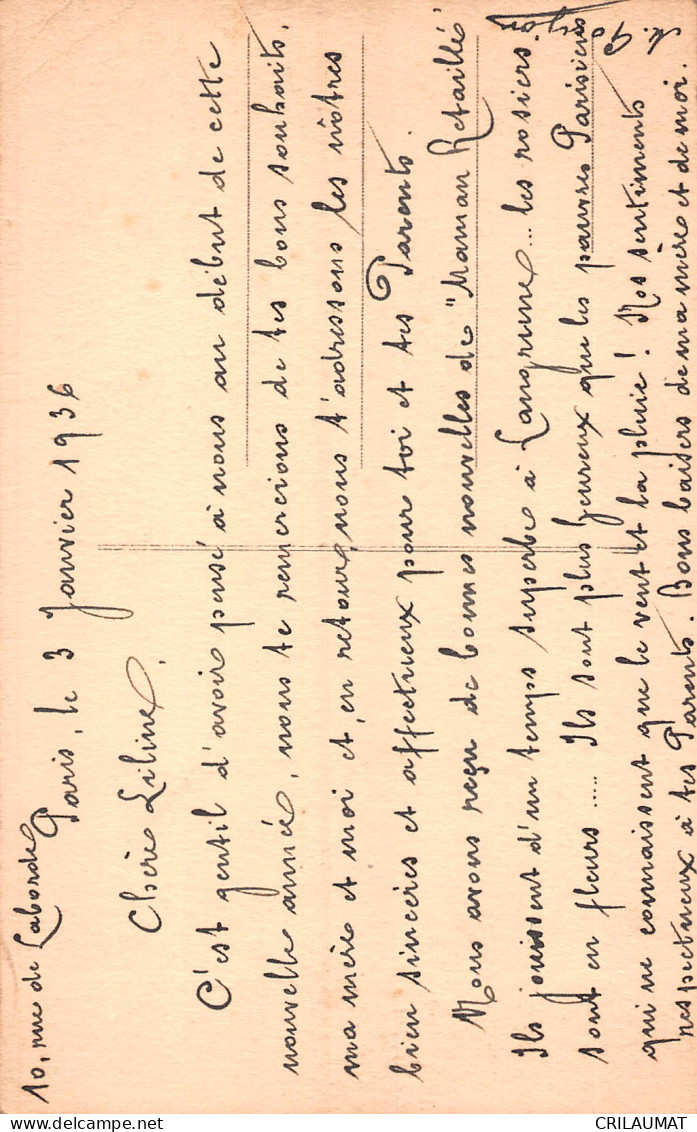 10, rue de Laborde
Paris, le 3 Janvier 1936
Chère Liline,
C'est gentil d'avoir pensé à nous au début de cette
nouvelle année, nous te remercions de tes bons souhaits,
ma mère et moi et, en retour, nous t'adressons les nôtres
bien sincères et affectueux pour toi et tes Parents.
Nous avons reçu de bonnes nouvelles de "Maman Retaillé"
Ils jouissent d'un temps superbe à Langrune... les rosiers
sont en fleurs ..... Ils sont plus heureux que les pauvres Parisiens
qui ne connaissent que le vent et la pluie! Nos sentiments
respectueux à tes Parents. Bons baisers de ma mère et de moi.
delcampe.net
CRILAUMAT